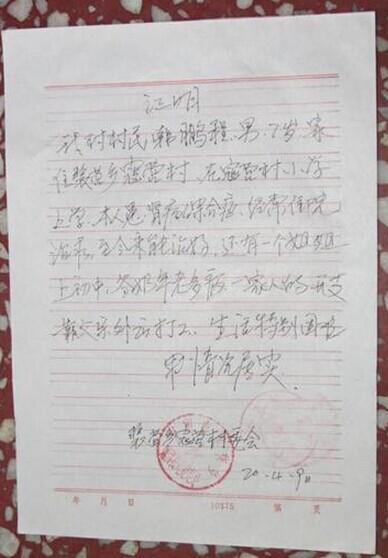 证明
该村村民韩鹏程,男,7岁,家
住张营乡寇营村,在寇营村小学
上学,本人患肾病综合症,经常住院
治疗,至今未能治好,还有一个姐姐
上初中,爷奶年老多病,一家人的开支
靠父亲外出打工,生活特别困难
情况属实.
张营乡寇营村委会
20 -4-9日
年 月 日 10375 第 页